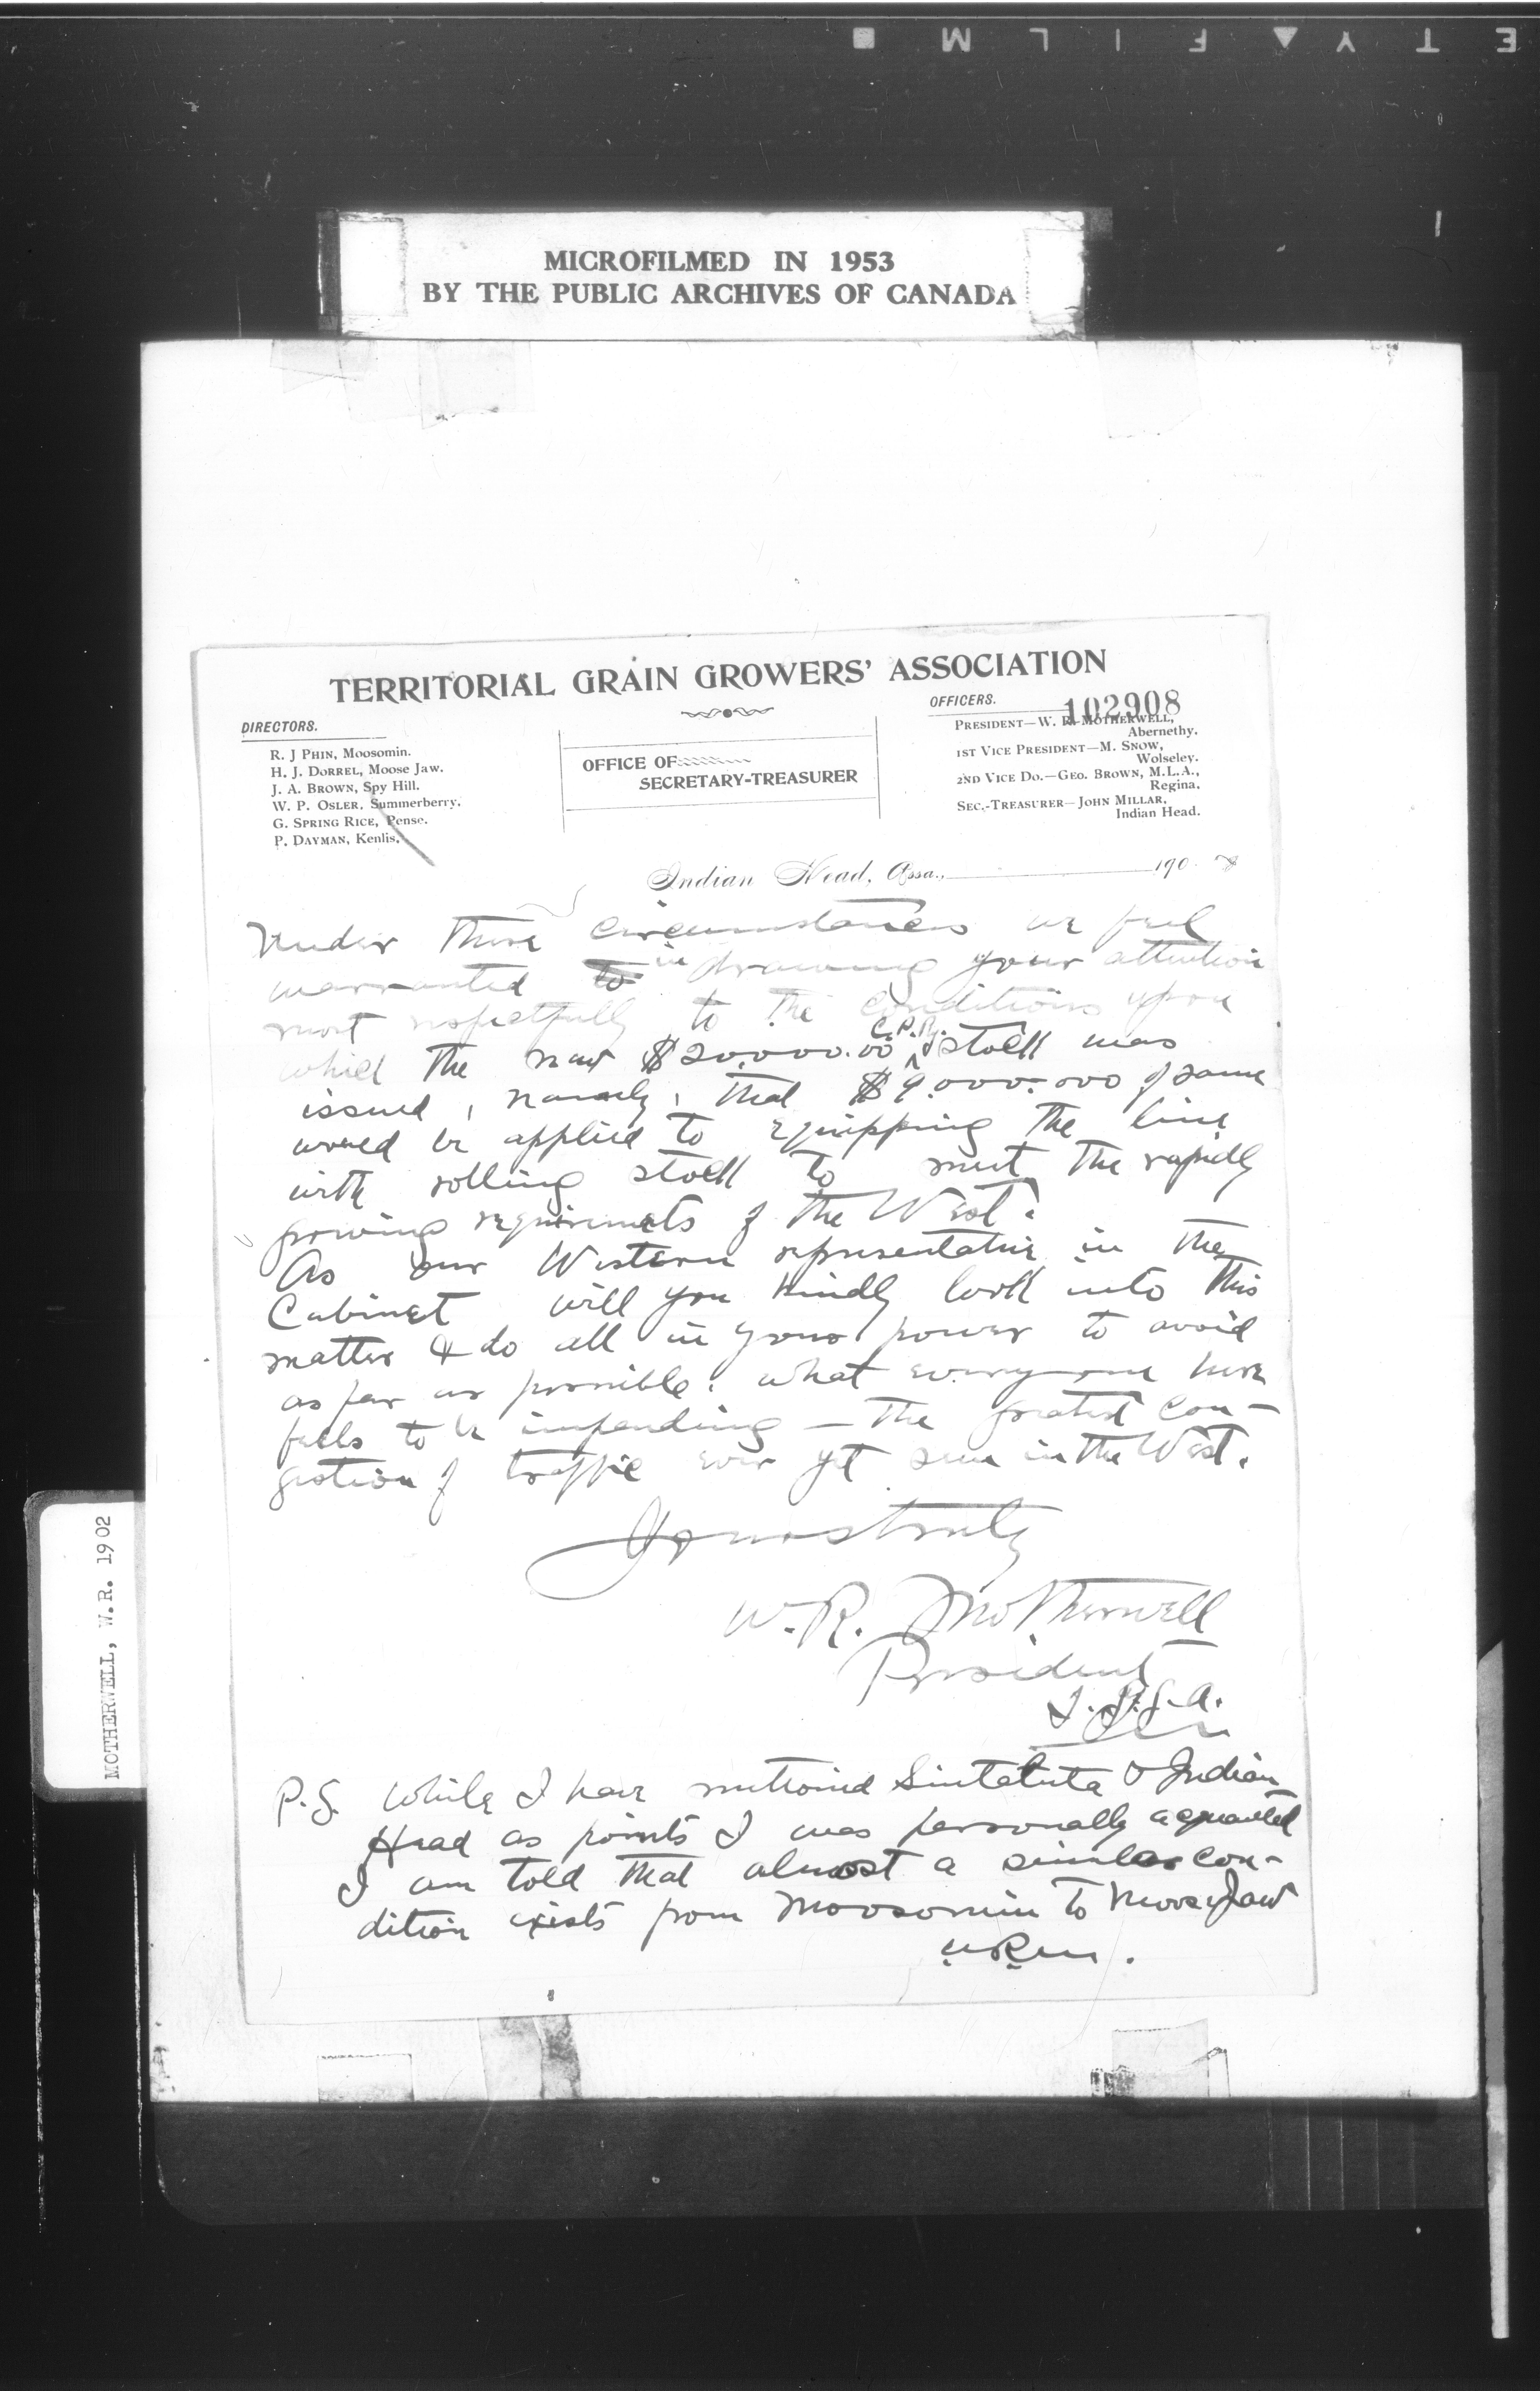 SAFETY FILM
MICROFILMED IN 1953
BY THE PUBLIC ARCHIVES OF CANADA
TERRITORIAL GRAIN GROWERS' ASSOCIATION
102908
DIRECTORS.
R. J PHIN, Moosomin.
H. J. DORREL, Moose Jaw.
J. A. BROWN, Spy Hill.
W. P. OSLER, Summerberry.
G. SPRING RICE, Pense.
P. DAYMAN, Kenlis.
OFFICE OF
SECRETARY-TREASURER
OFFICERS.
PRESIDENT—W. R. MOTHERWELL,
Abernethy.
1ST VICE PRESIDENT—M. SNOW,
Wolseley.
2ND VICE DO.—GEO. BROWN, M.L.A.,
Regina.
SEC.-TREASURER—JOHN MILLAR,
Indian Head.
Indian Head, Assa., 190
Under these circumstances we feel
warranted to in drawing your attention
most respectfully to the conditions upon
which the new $20.000.00 C.P.R. stock was
issued, namely, that $9.000.000 of same
would be applied to equipping the line
with rolling stock to meet the rapidly
growing requirements of the West.
As our Western representative in the
Cabinet will you kindly look into this
matter & do all in your power to avoid
as far as possible, what every one here
feels to be impending — the greatest con-
gestion of traffic ever yet seen in the West.
Yours truly
W.R. Motherwell
President
T.G.G.A.
P.S. While I have mentioned Sintaluta & Indian
Head as points I was personally acquainted
I am told that almost a similar con-
dition exists from Moosomin to Moose Jaw
WRM.
MOTHERWELL, W.R. 1902